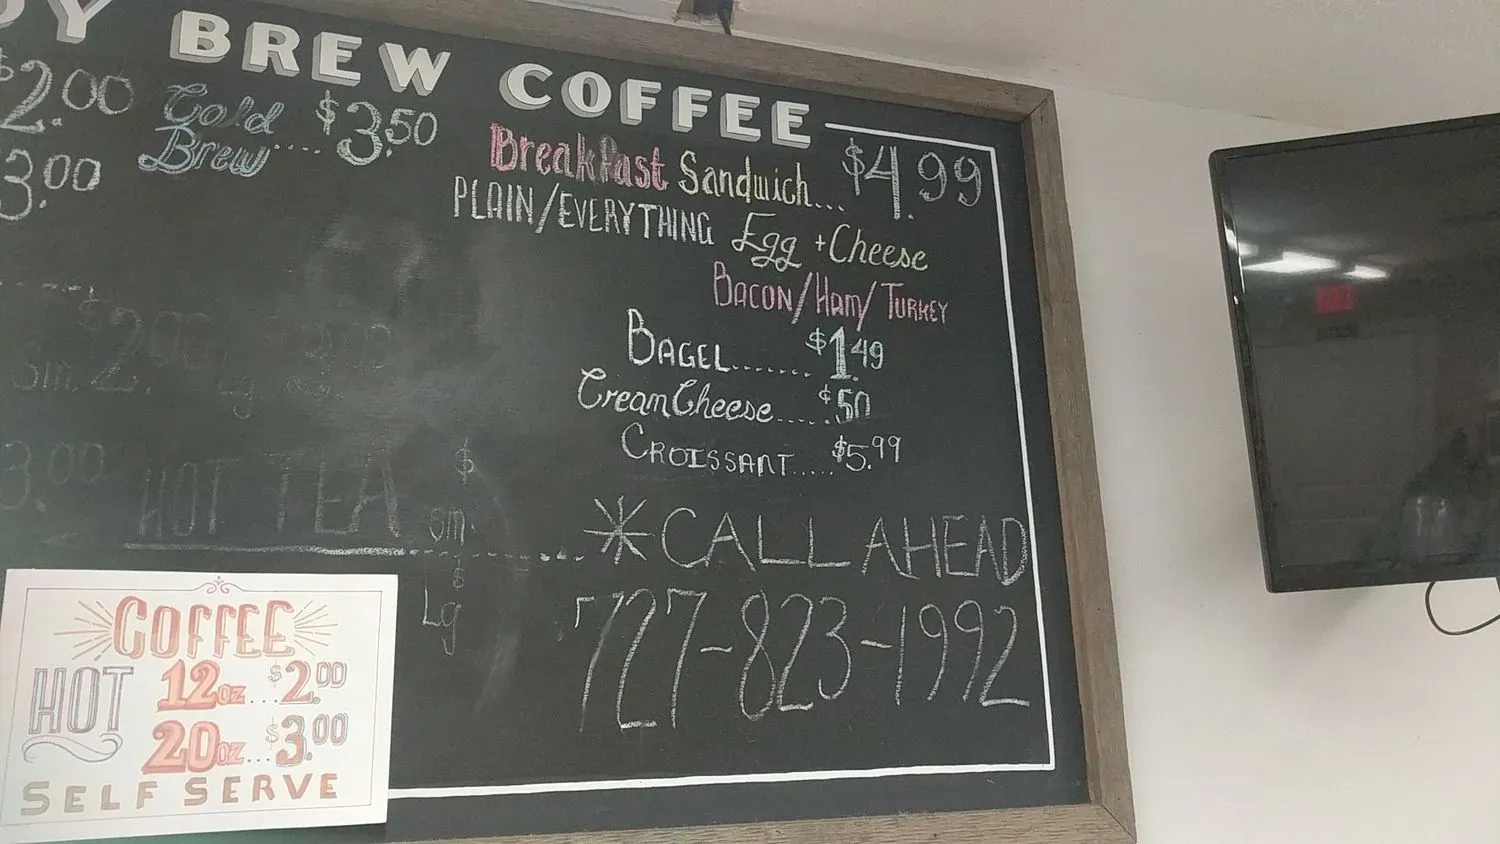 BREW COFFEE
$2.00 Cold Brew.... $3.50
3.00
Breakfast Sandwich... $4.99
PLAIN/EVERYTHING Egg + Cheese
BACON/HAM/TURKEY
BAGEL....... $1.49
Cream Cheese..... $.50
CROISSANT..... $5.99
3.00 HOT TEA $
sm
$
Lg
*CALL AHEAD
727-823-1992
COFFEE
HOT
12oz...$2.00
20oz...$3.00
SELF SERVE